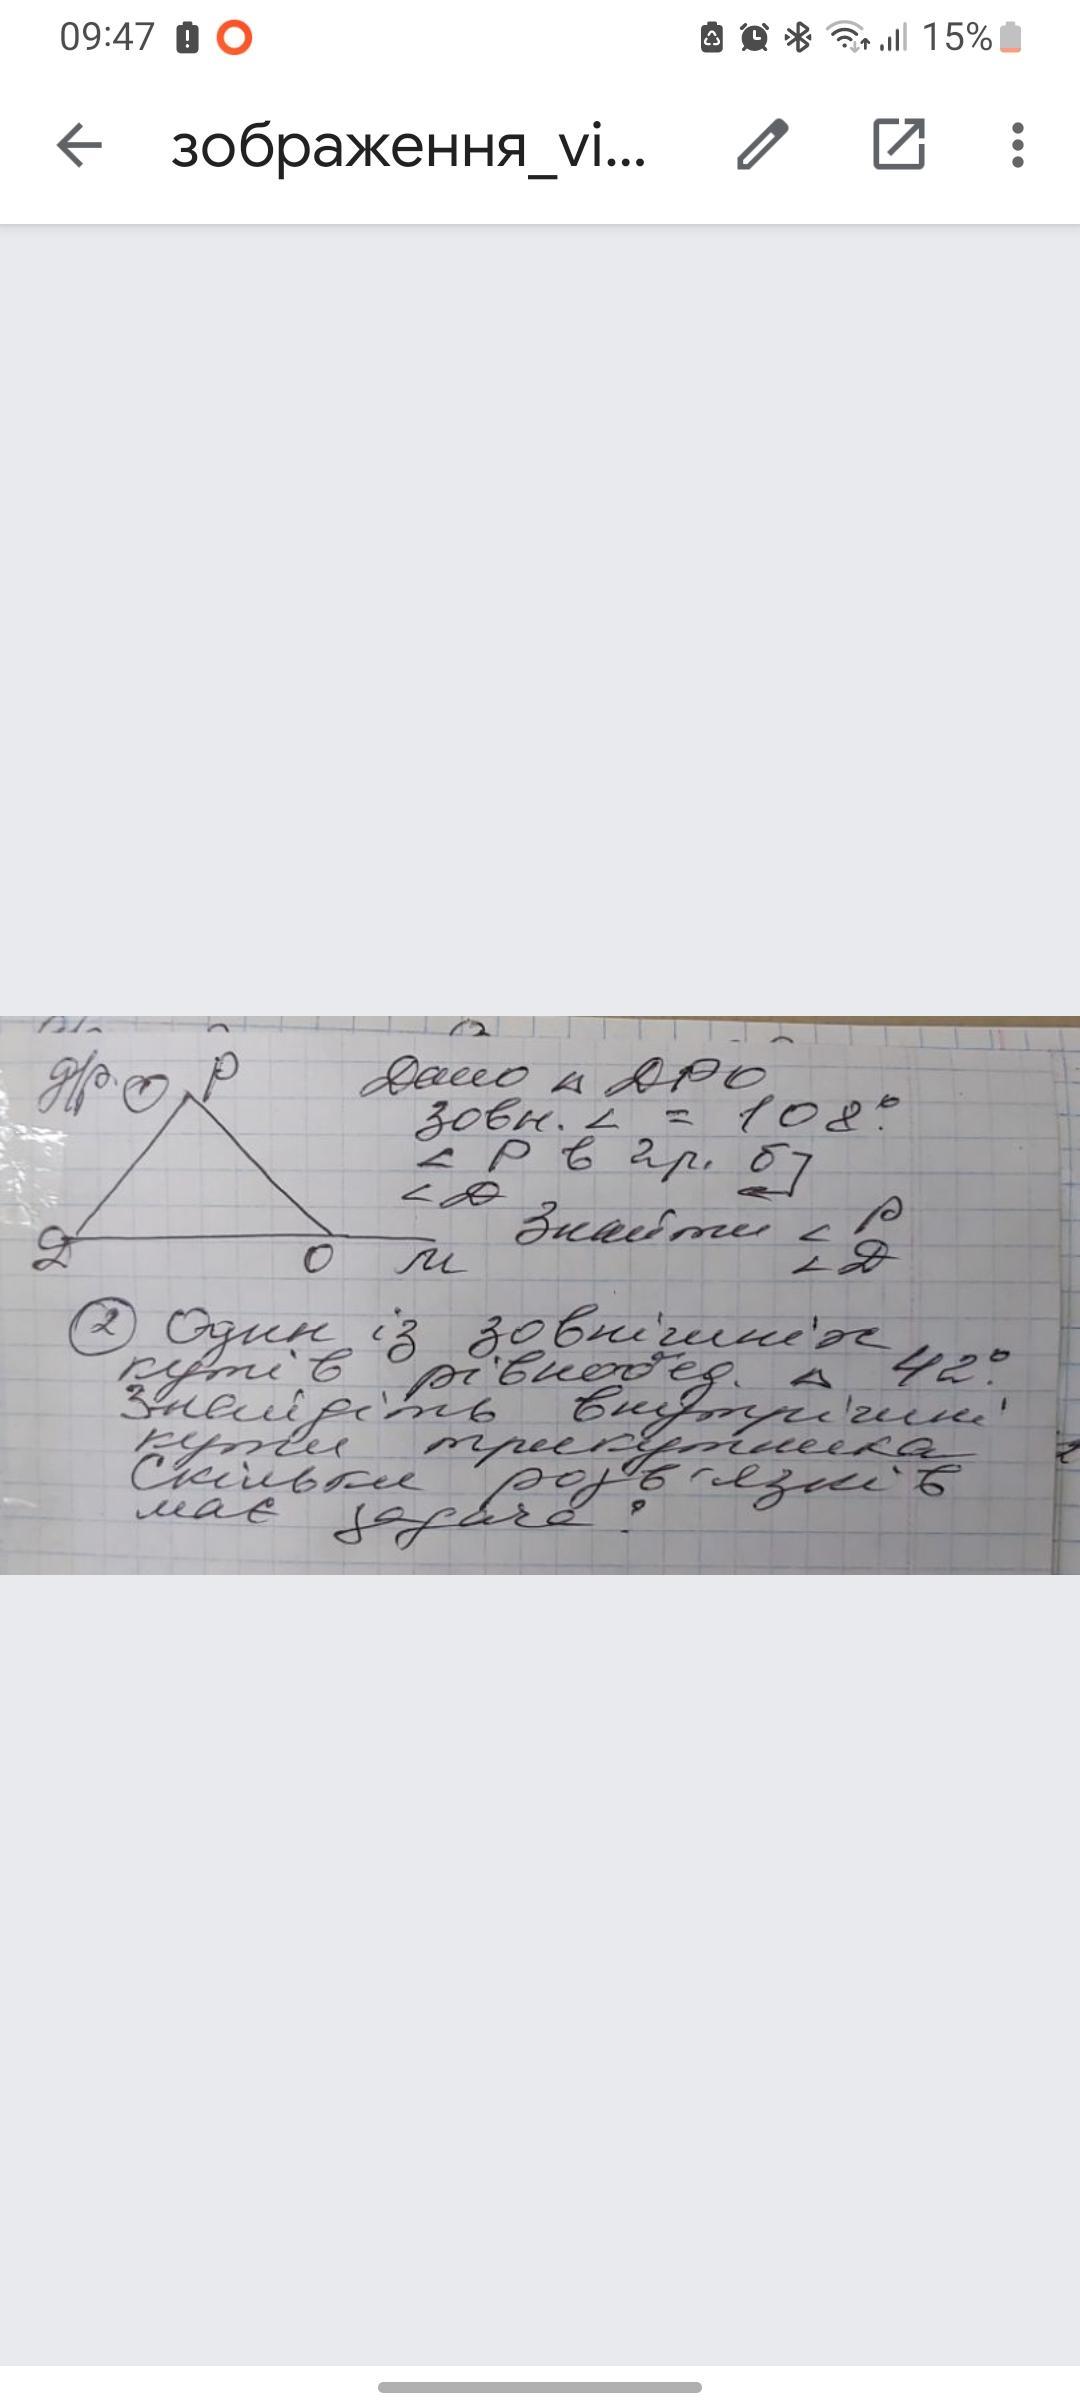 09:47
15%
зображення_vi...
д/р. ① P
Дано △ ДРО
зовн. ∠ = 108°.
∠ P в 2 р. б]
∠ Д
Знайти ∠ P
∠ Д
Д O M
② Один із зовнішніх
кутів рівнобед. △ 42°.
Знайдіть внутрішні
кути трикутника
Скільки розв'язків
має задача?